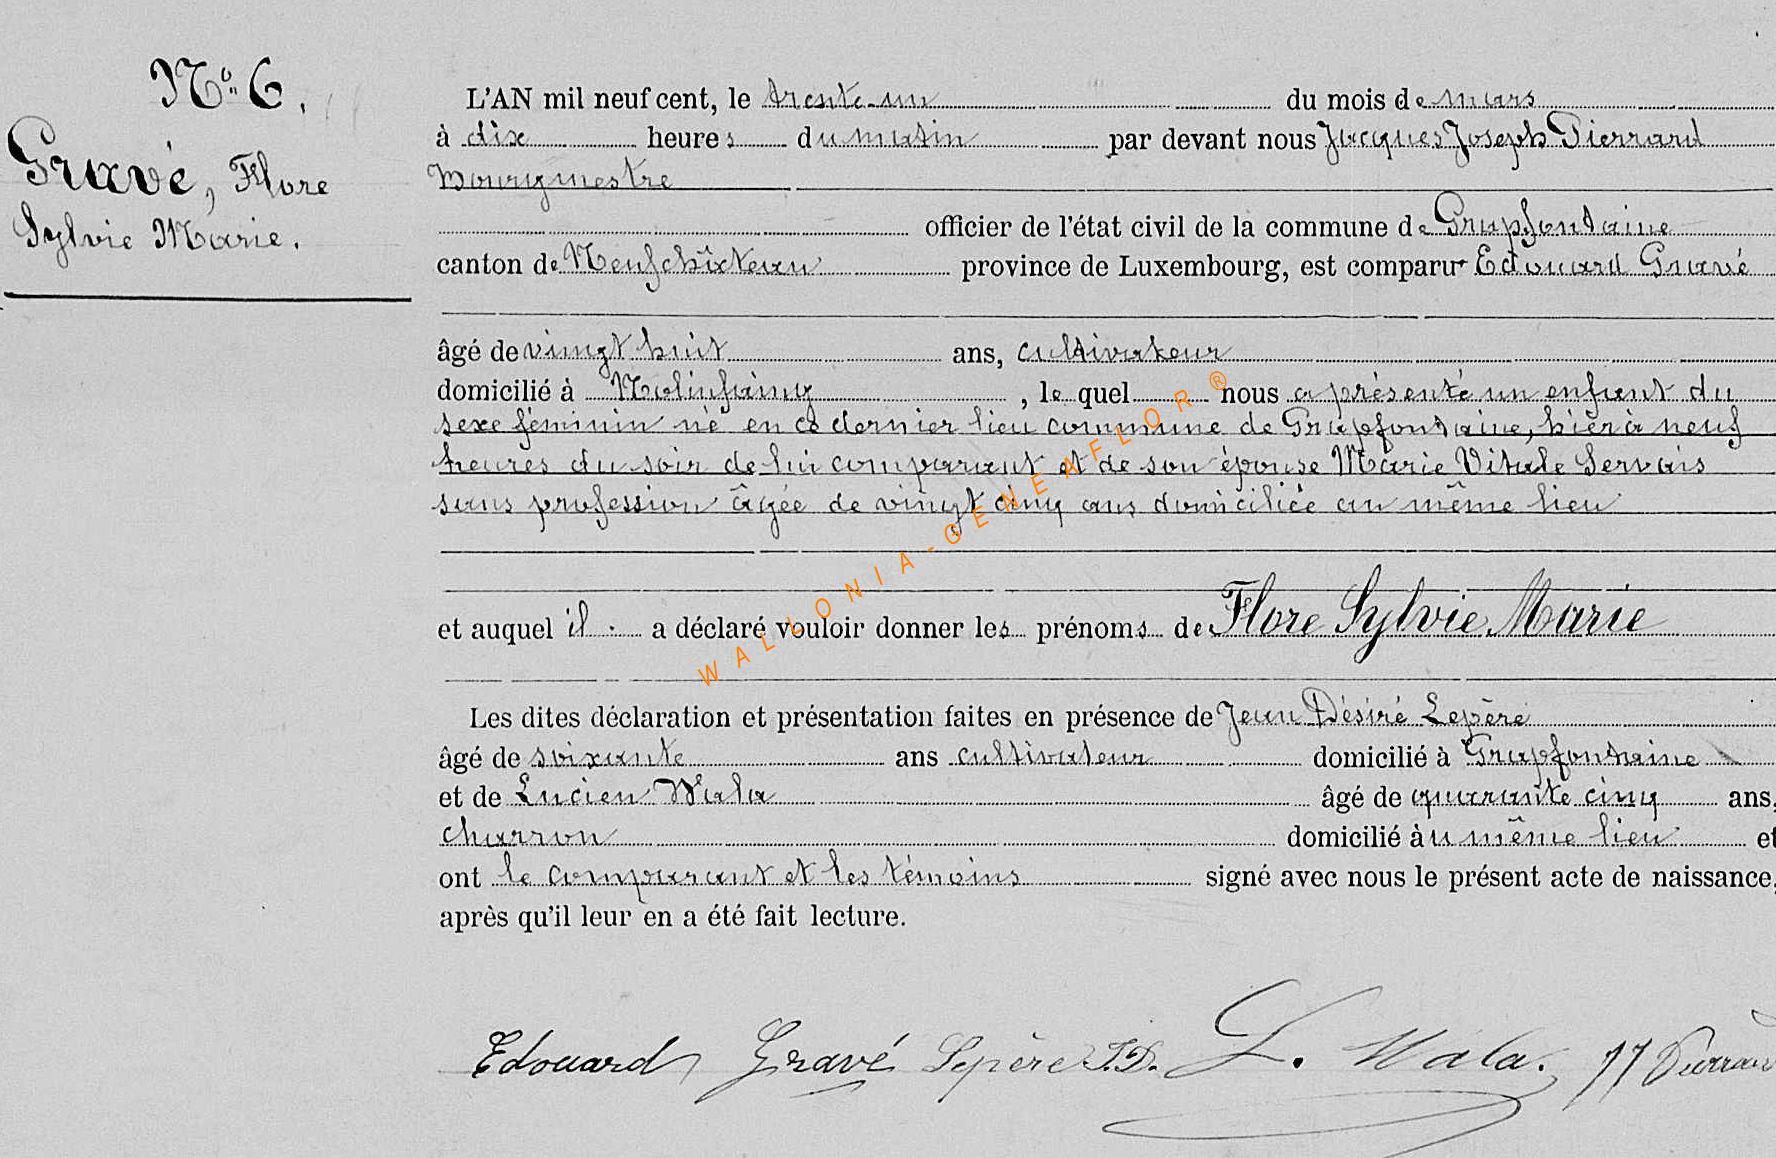 N° 6.
Gravé, Flore
Sylvie Marie.
L'AN mil neuf cent, le trente-un du mois de mars
à dix heures du matin par devant nous Jacques Joseph Pierrard
bourgmestre
officier de l'état civil de la commune de Grapfontaine
canton de Neufchâteau province de Luxembourg, est comparu Edouard Gravé
âgé de vingt huit ans, cultivateur
domicilié à Molinfaing, le quel nous a présenté un enfant du
sexe féminin né en ce dernier lieu commune de Grapfontaine, hier à neuf
heures du soir de lui comparant et de son épouse Marie Vitale Servais
sans profession âgée de vingt cinq ans domiciliée au même lieu
et auquel il a déclaré vouloir donner les prénoms de Flore Sylvie Marie
Les dites déclaration et présentation faites en présence de Jean Désiré Lepère
âgé de soixante ans cultivateur domicilié à Grapfontaine
et de Lucien Wala âgé de quarante cinq ans,
charron domicilié àu même lieu et
ont le comparant et les témoins signé avec nous le présent acte de naissance,
après qu'il leur en a été fait lecture.
Edouard Gravé Lepère J.D. L. Wala. JJ Pierrard
WALLONIA-GENEAFLOR®